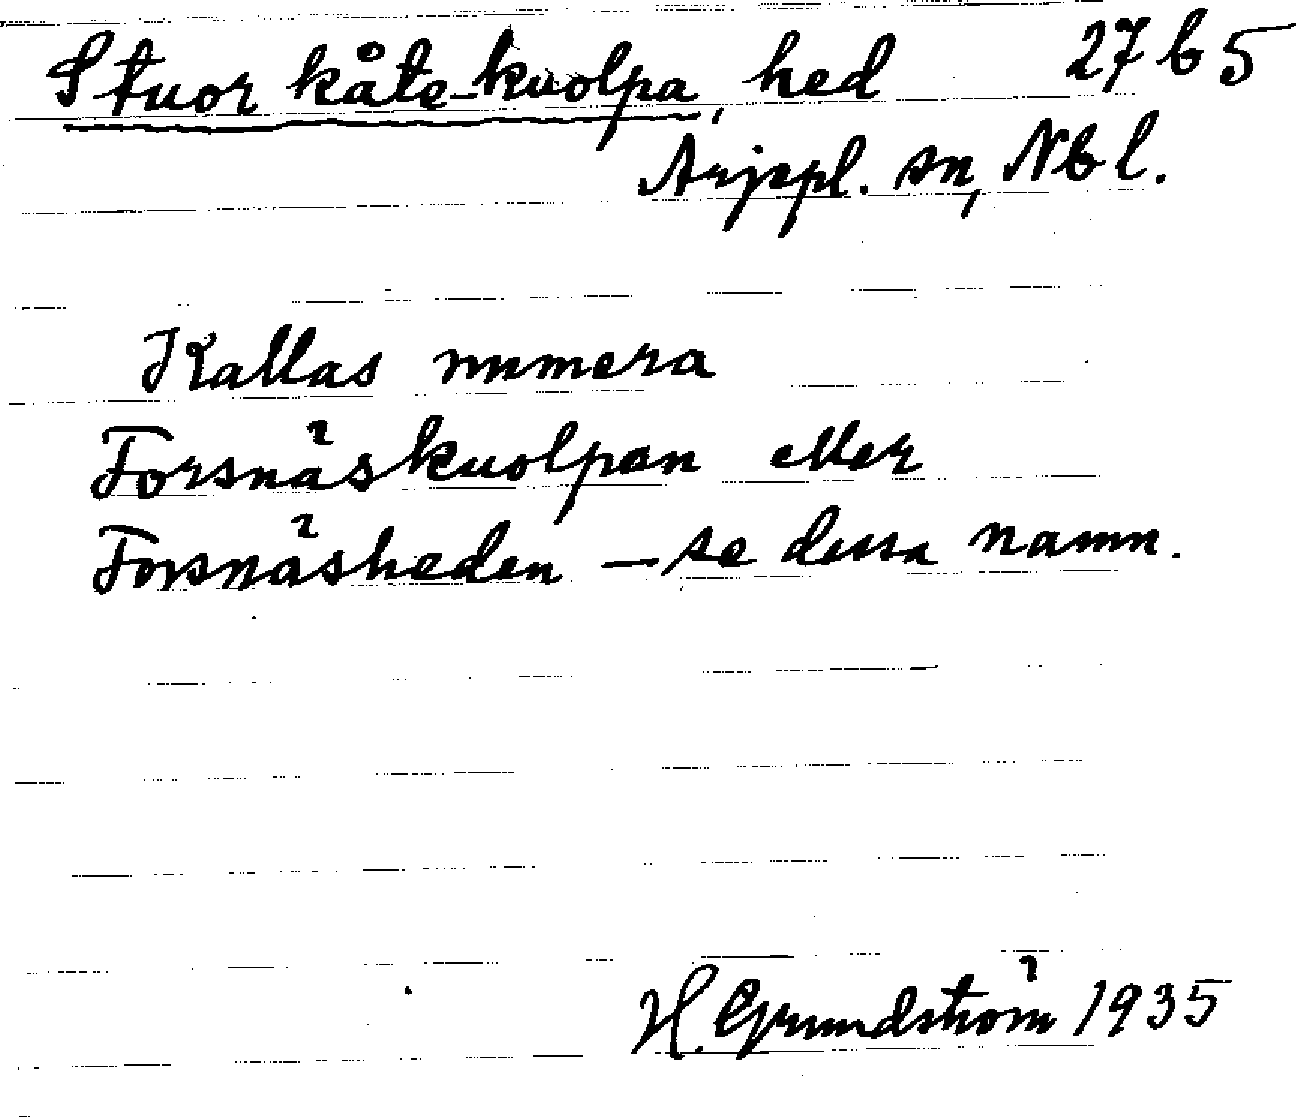 Stuor kåte-kuolpa, hed 27 b 5
Arjepl. sn, Nb l.
Kallas nummera
Forsnäskuolpan eller
Forsnäsheden – se dessa namn.
H. Grundström 1935